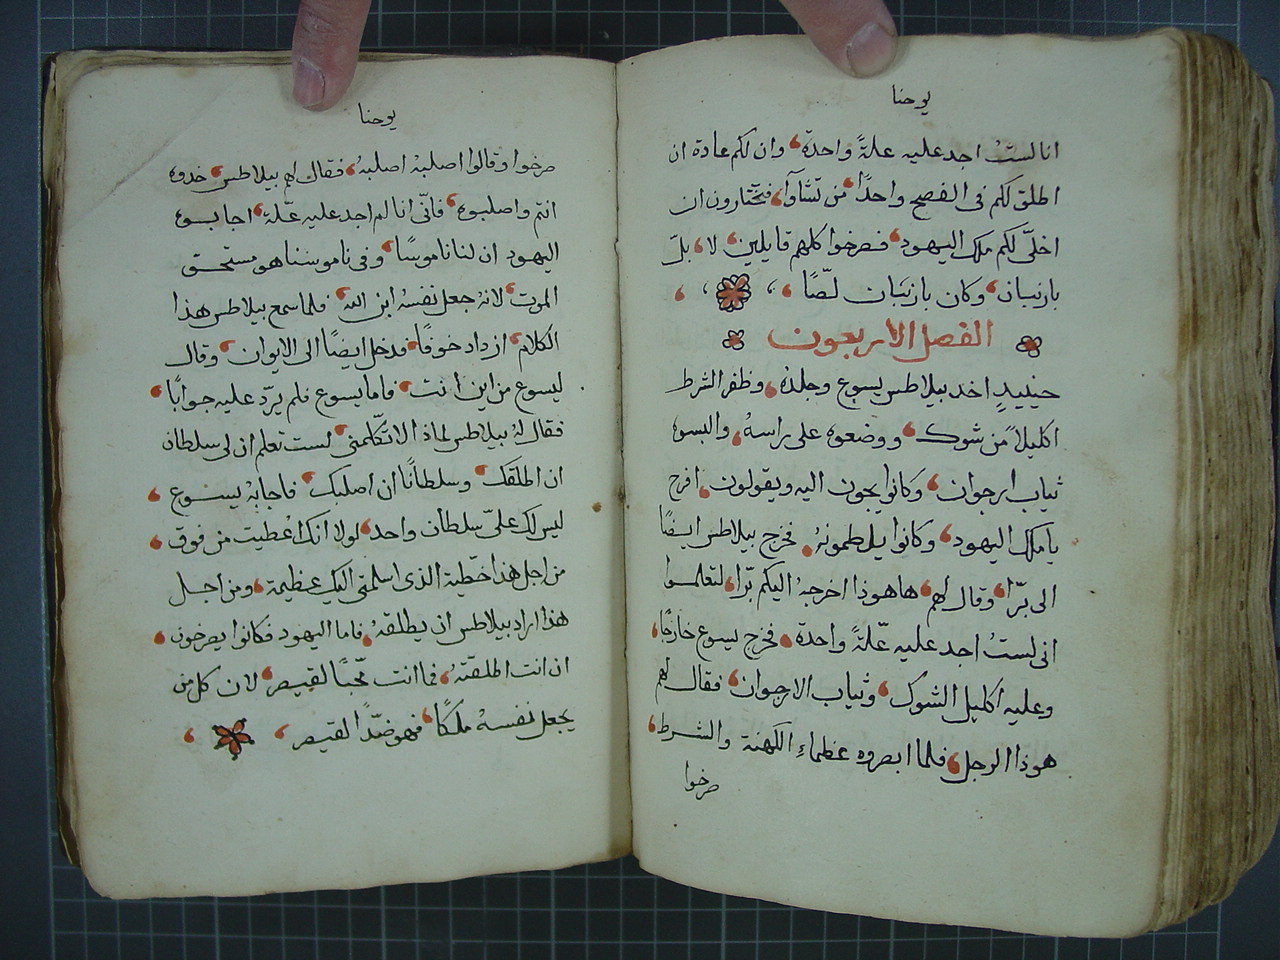 يوحنا
انا لستُ اجد عليه علةً واحدة، وان لكم عادة ان
اطلق لكم فى الفصح واحدًا، من تشآوا، فتختارون ان
اخلّى لكم ملك اليهود، فصرخوا كلهم قايلين، لا، بل
بارنبان، وكان بارنبان لصًّا،
الفصل الاربعون
حينيدٍ اخد بيلاطس يسوع وجلده، وظفر الشرط
اكليلاً من شوك، ووضعوه على راسهُ، والبسوه
ثياب ارجوان، وكانوا يجون اليه ويقولون، افرح
يا ملك اليهود، وكانوا يلطمونهُ، فخرج بيلاطس ايضًا
الى برّا، وقال لهم، هاهوذا اخرجهُ اليكم برّا، لتعلموا
انى لستُ اجد عليه علّةً واحدة، فخرج يسوع خارجًا،
وعليه اكليل الشوك، وثياب الارجوان، فقال لهم
هوذا الرجل، فلما ابصروه عظماءِ الكهنة والشرط،
صرخوا
يوحنا
صرخوا وقالوا اصلبهُ اصلبهُ، فقال لهم بيلاطس، خدوه
انتم واصلبوه، فانّى انا لم اجد عليه علّة، اجابوه
اليهود ان لنا ناموسًا، وفى ناموسنا هو مستحق
الموت، لانهُ جعل نفسهُ ابن الله، فلما سمع بيلاطس هذا
الكلام، ازداد خوفًا، فدخل ايضًا الى الايوان، وقال
ليسوع من اين انت، فاما يسوع فلم يردّ عليه جوابًا،
فقال لهُ بيلاطس لماذا لا تكلمنى، لست تعلم ان لى سلطان
ان اطلقك، وسلطانًا ان اصلبك، فاجابهُ يسوع،
ليس لك علىّ سلطان واحد، لولا انك اعطيت من فوق،
من اجل هذا خطية الذى اسلمنى اليك عظيمة، ومن اجل
هذا اراد بيلاطس ان يطلقهُ، فاما اليهود فكانوا يصرخون،
ان انت اطلقتهُ، فما انت محبًّا لقيصر، لان كل من
يجعل نفسهُ ملكًا، فهو ضدًّا لقيصر،